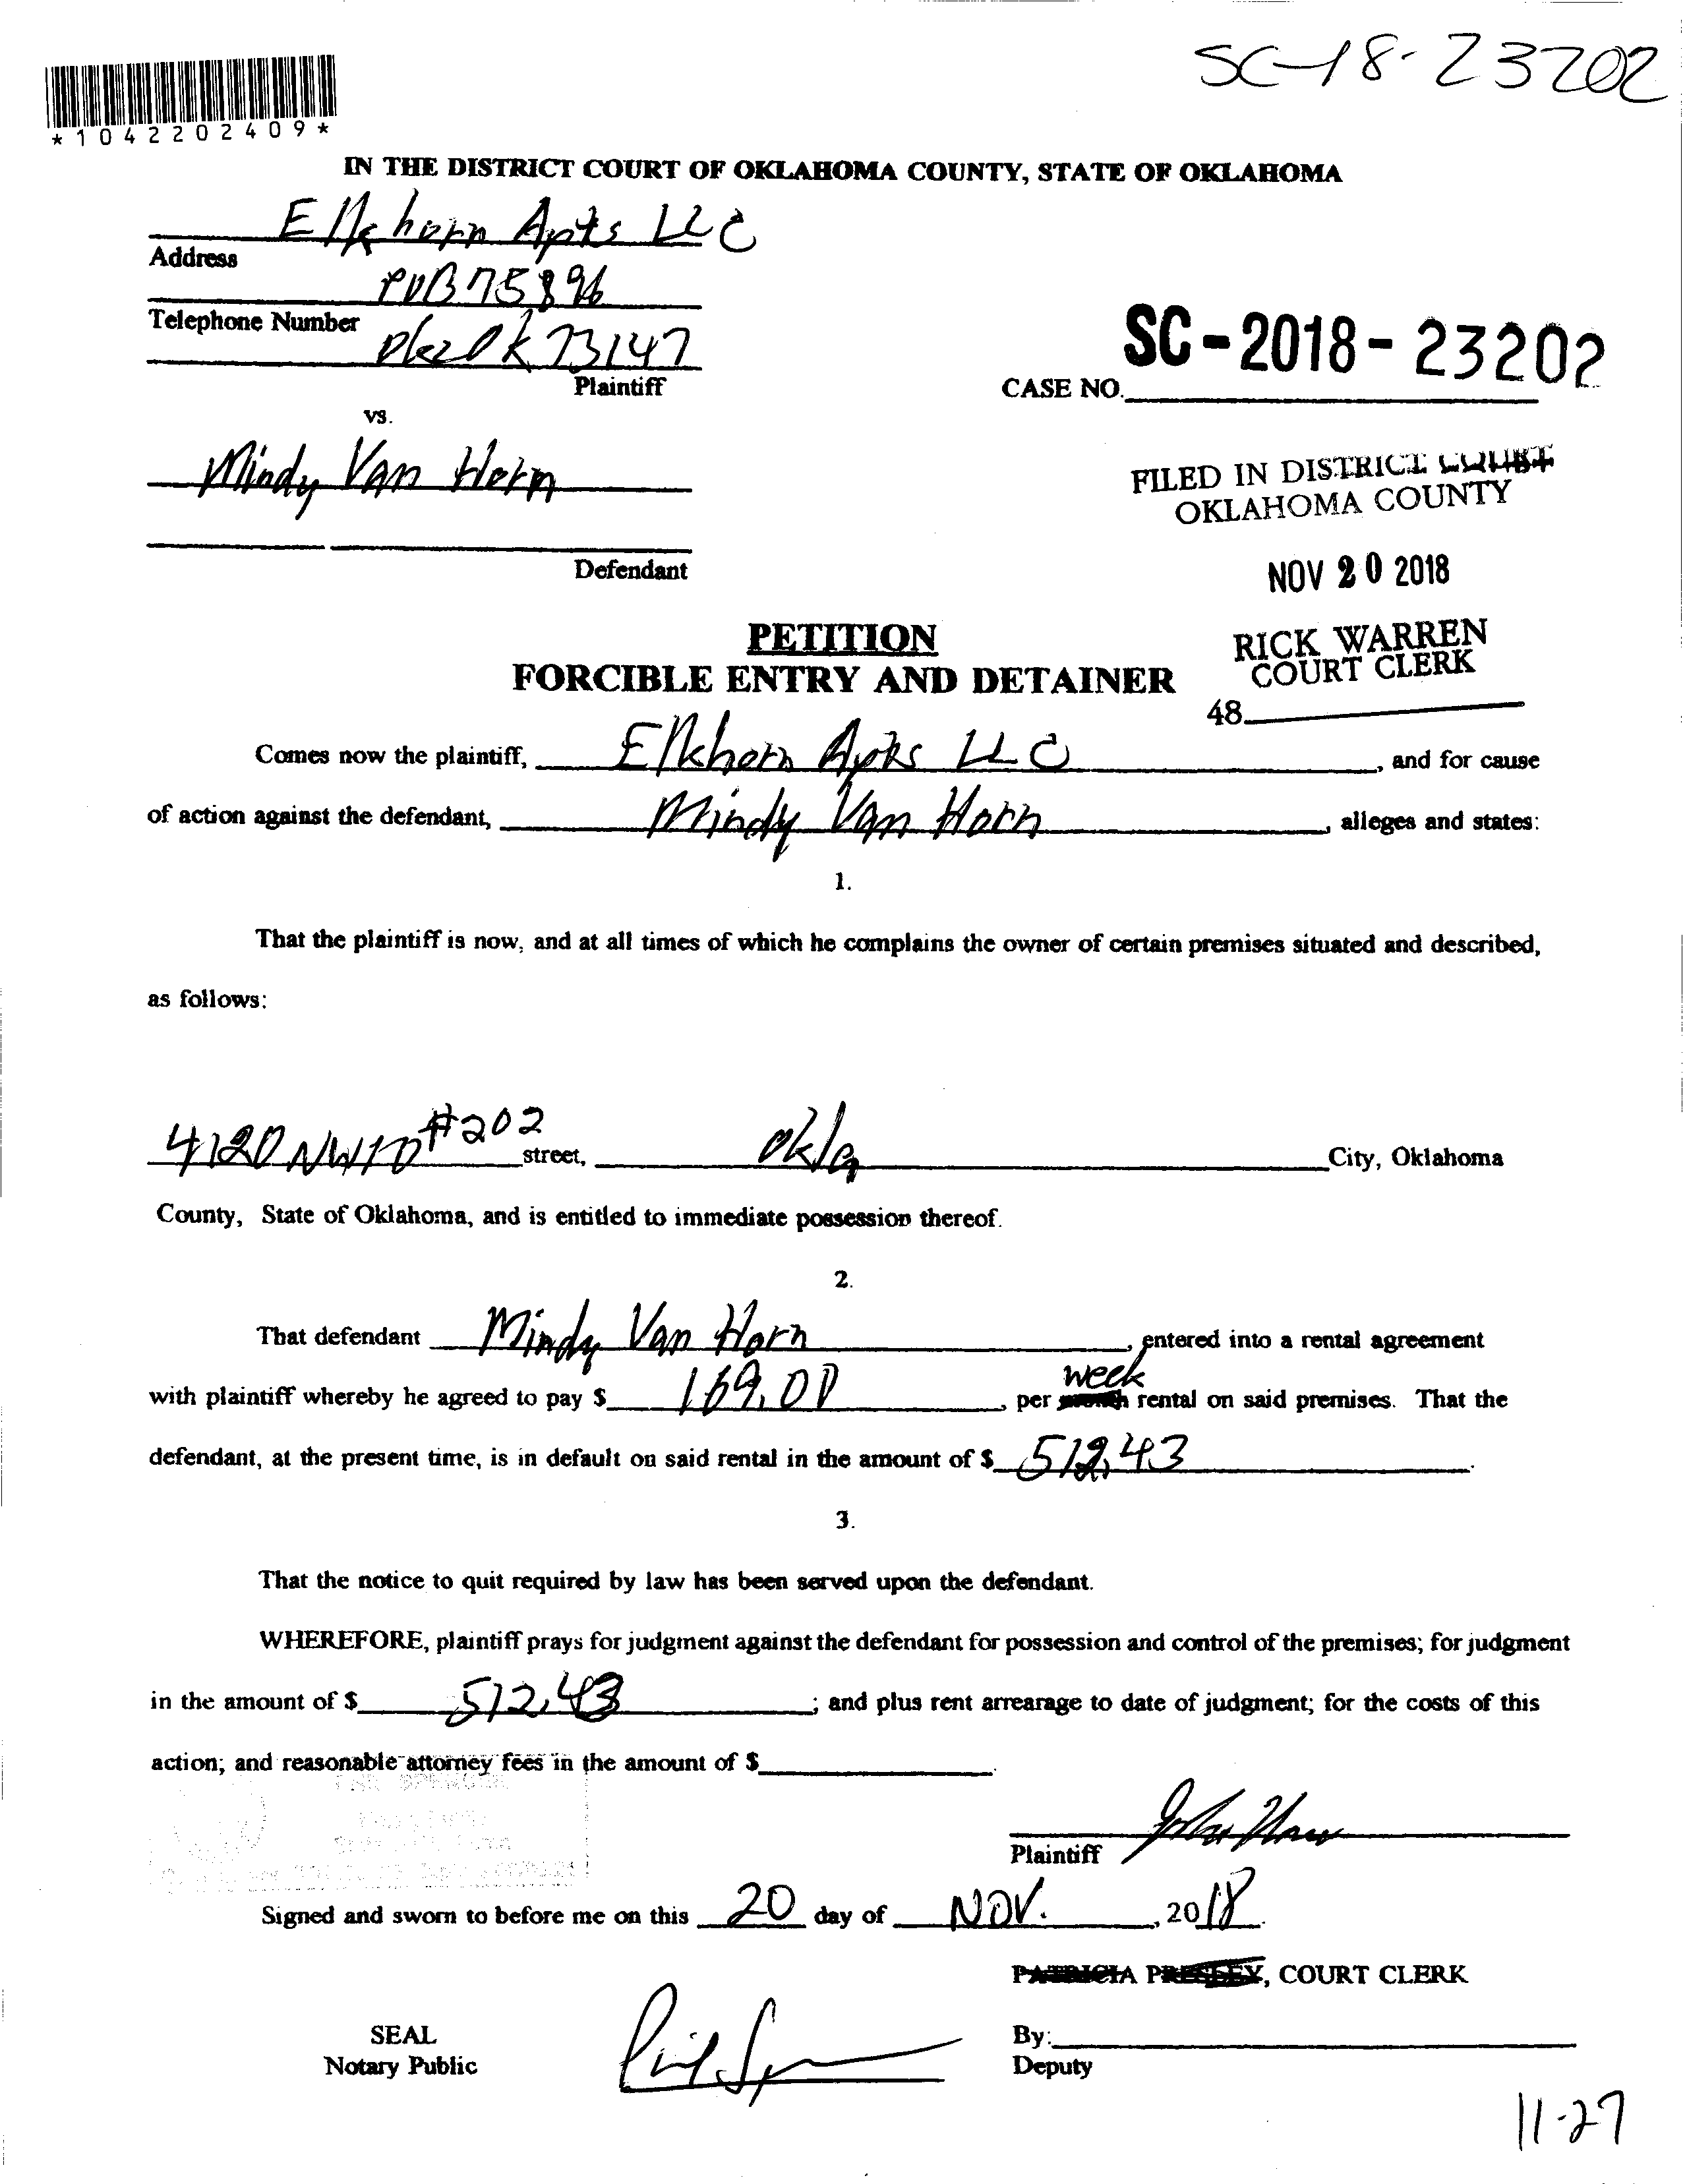 SC-18-23202
*1042202409*
IN THE DISTRICT COURT OF OKLAHOMA COUNTY, STATE OF OKLAHOMA
Elkhorn Apts LLC
Address
POB 75896
Telephone Number
Okc Ok 73147
Plaintiff
SC-2018-23202
CASE NO.
vs.
Mindy Van Horn
FILED IN DISTRICT COURT
OKLAHOMA COUNTY
Defendant
NOV 20 2018
PETITION
RICK WARREN
COURT CLERK
FORCIBLE ENTRY AND DETAINER
48
Comes now the plaintiff, Elkhorn Apts LLC, and for cause
of action against the defendant, Mindy Van Horn, alleges and states:
1.
That the plaintiff is now, and at all times of which he complains the owner of certain premises situated and described,
as follows:
4120 NW10 #202 street, Okla City, Oklahoma
County, State of Oklahoma, and is entitled to immediate possession thereof.
2.
That defendant Mindy Van Horn, entered into a rental agreement
with plaintiff whereby he agreed to pay $ 169.00, per month week rental on said premises. That the
defendant, at the present time, is in default on said rental in the amount of $ 512.43.
3.
That the notice to quit required by law has been served upon the defendant.
WHEREFORE, plaintiff prays for judgment against the defendant for possession and control of the premises; for judgment
in the amount of $ 512.43; and plus rent arrearage to date of judgment; for the costs of this
action; and reasonable attorney fees in the amount of $
Plaintiff
Signed and sworn to before me on this 20 day of NOV., 2018.
PATRICIA PRESLEY, COURT CLERK
SEAL
Notary Public
By:
Deputy
11-27